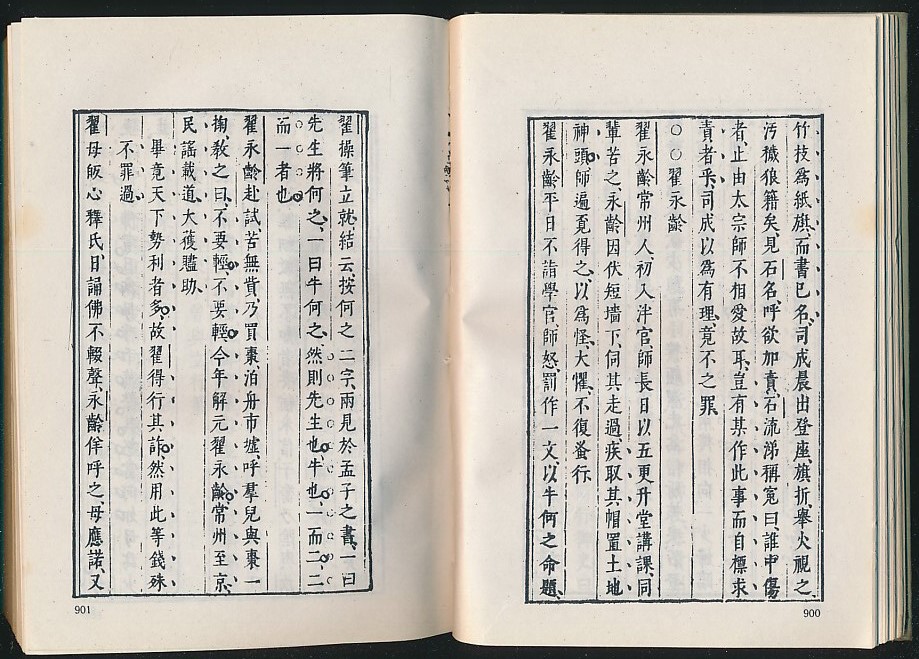 竹技為紙旗、而書已名、司成晨出登座、旗折、舉火視之、
汚穢狼籍矣、見石名、呼欲加責、石流涕稱冤曰、誰中傷
者、止由太宗師不相愛故耳、豈有某作此事而自標求
責者乎、司成以為有理、竟不之罪、
○○翟永齡
翟永齡常州人、初入泮宮、師長日以五更升堂講課、同
輩苦之、永齡因伏短墻下、伺其走過、疾取其帽、置土地
神頭、師遍覓得之、以為怪、大懼、不復蚤行、
翟永齡平日不詣學宮、師怒、罰作一文、以牛何之命題、
900
翟操筆立就、結云、按何之二字、兩見於孟子之書、一曰
先生將何之、一曰牛何之、然則先生也、牛也、一而二、二
而一者也
翟永齡赴試、苦無貲、乃買棗、泊舟市墟、呼羣兒與棗一
掬、教之曰、不要輕、不要輕、今年解元翟永齡、常州至京、
民謠載道、大獲贐助、
畢竟天下勢利者多、故翟得行其詐、然用此等錢殊
不罪過、
翟母皈心釋氏、日誦佛不輟聲、永齡佯呼之、母應諾、又
901